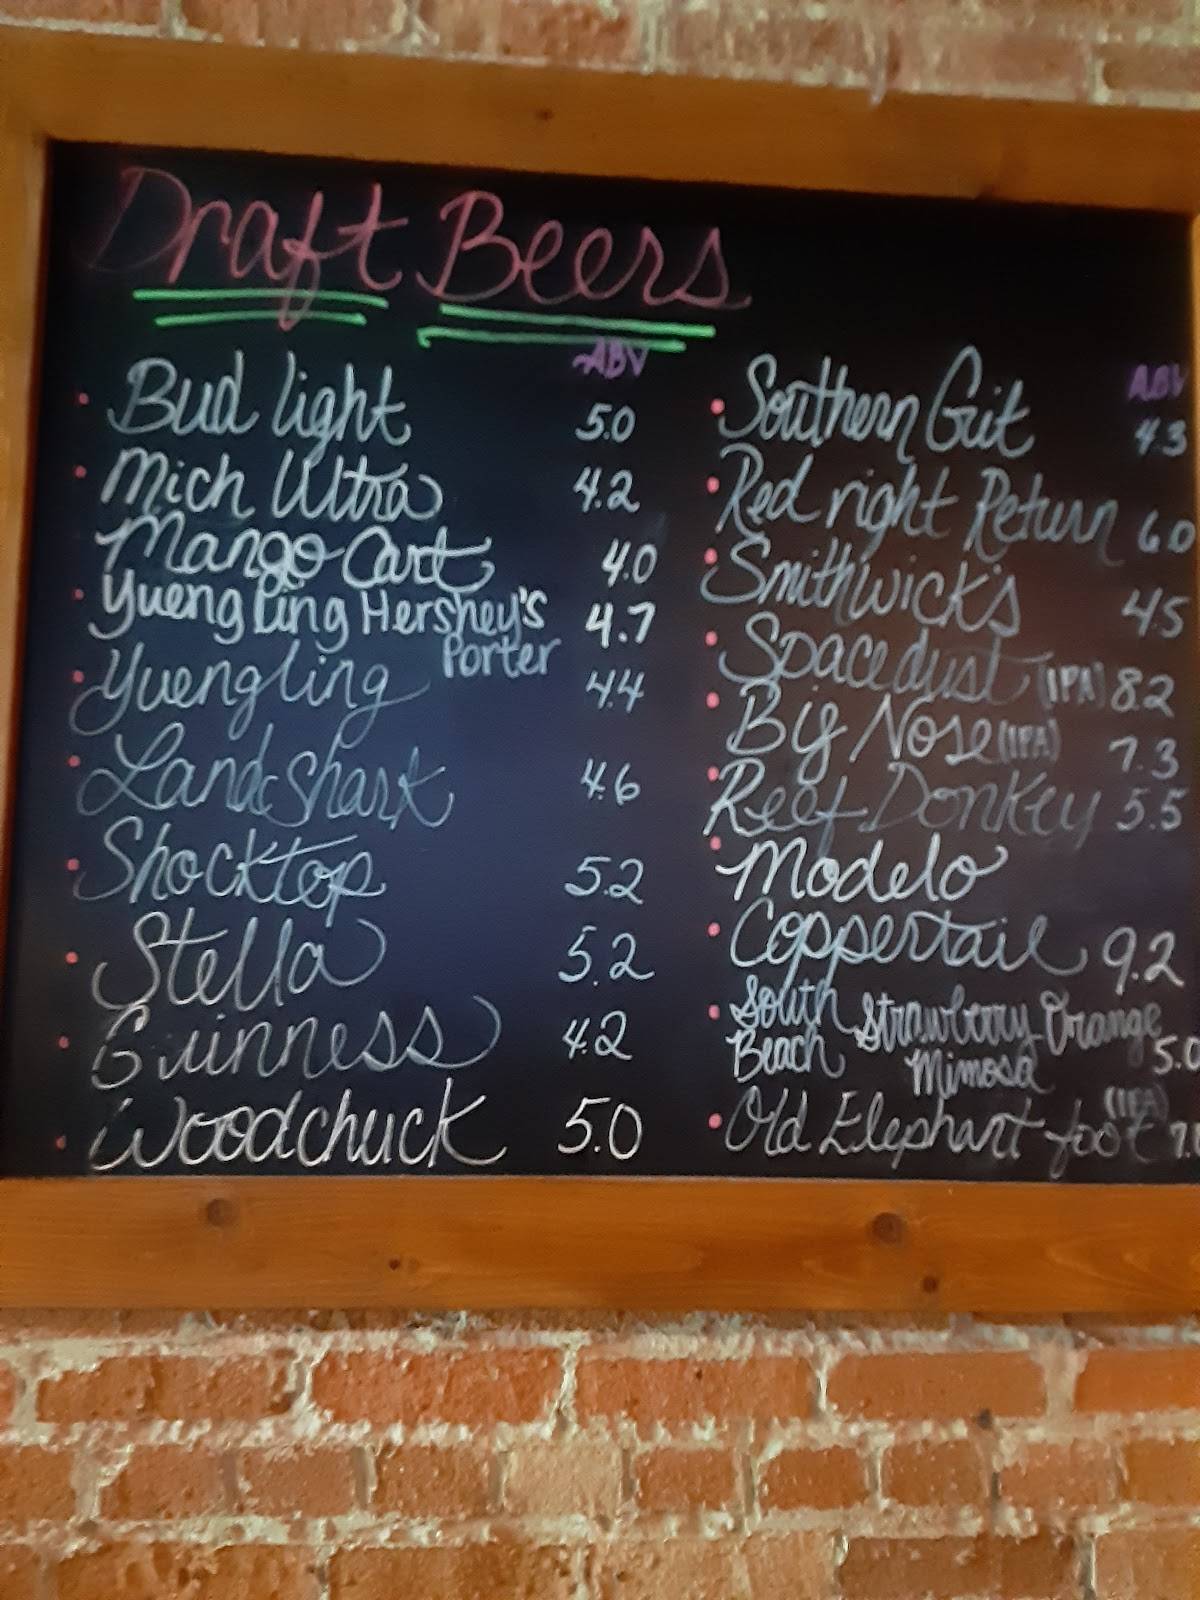 Draft Beers
ABV
Bud light 5.0
Mich Ultra 4.2
Mango Cart 4.0
Yuengling Hershey's 4.7
Porter
Yuengling 4.4
Landshark 4.6
Shocktop 5.2
Stella 5.2
Guinness 4.2
Woodchuck 5.0
ABV
Southern Grit 4.3
Red right Return 6.0
Smithwick's 4.5
Spacedust (IPA) 8.2
Big Nose (IPA) 7.3
Reef Donkey 5.5
Modelo
Coppertail 9.2
South Strawberry Orange
Beach Mimosa 5.0
(IPA)
Old Elephant foot